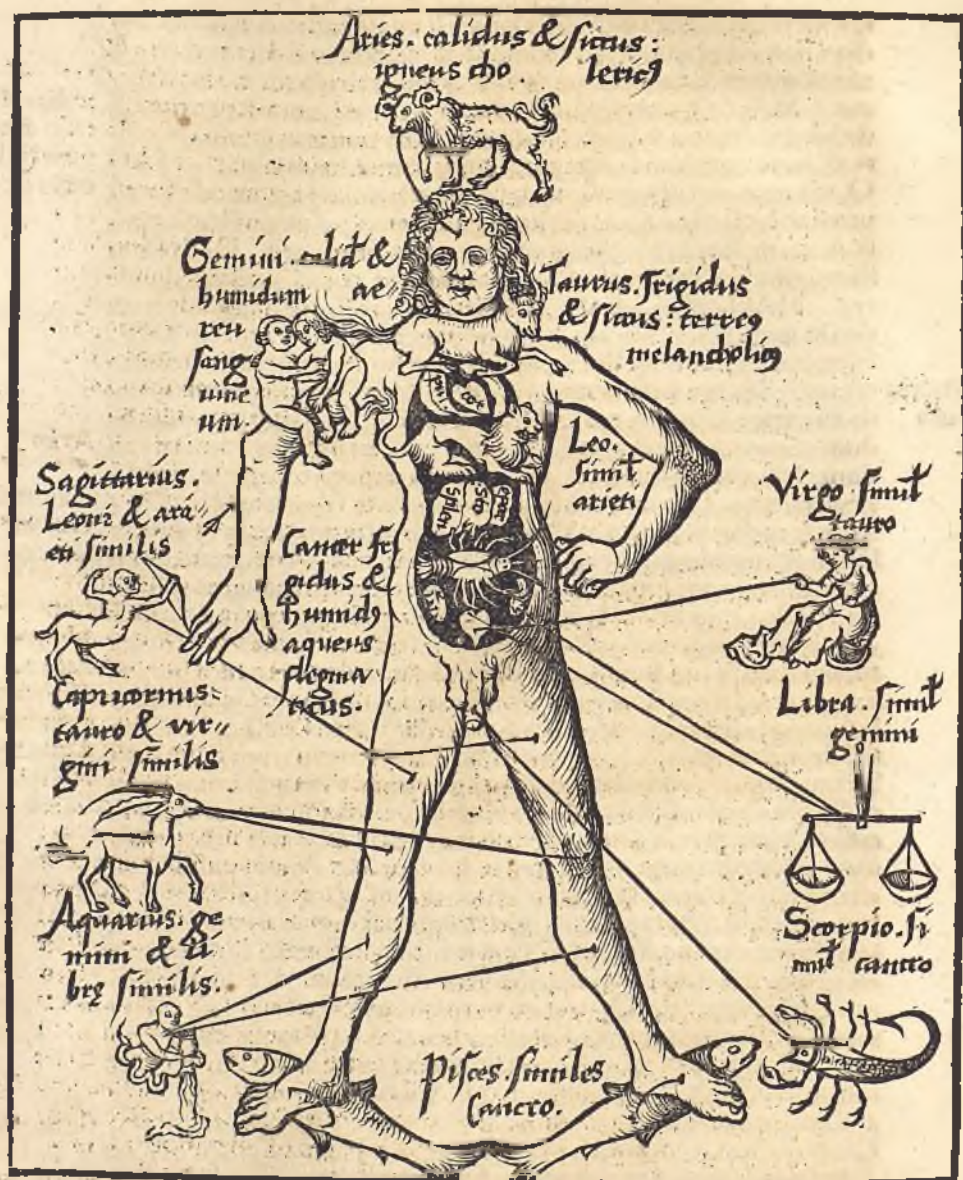 Aries. calidus & siccus:
igneus cho lericꝰ
Gemini. calid &
humidum ae
reu
sang
uine
um.
Taurus. frigidus
& siccus: terreꝰ
melancholicꝰ
Leo.
simil
arieti
Virgo simil
tauro
Sagittarius.
Leoni & ari
eti similis
Cancer fri
gidus &
humidꝰ
aqueus
flegma
ticus.
cor
splen
Capricornus:
tauro & vir
gini similis
Libra. simil
gemini
Aquarius. ge
mini & li
brę similis.
Scorpio. si
mil cancro
Pisces. similes
Cancro.